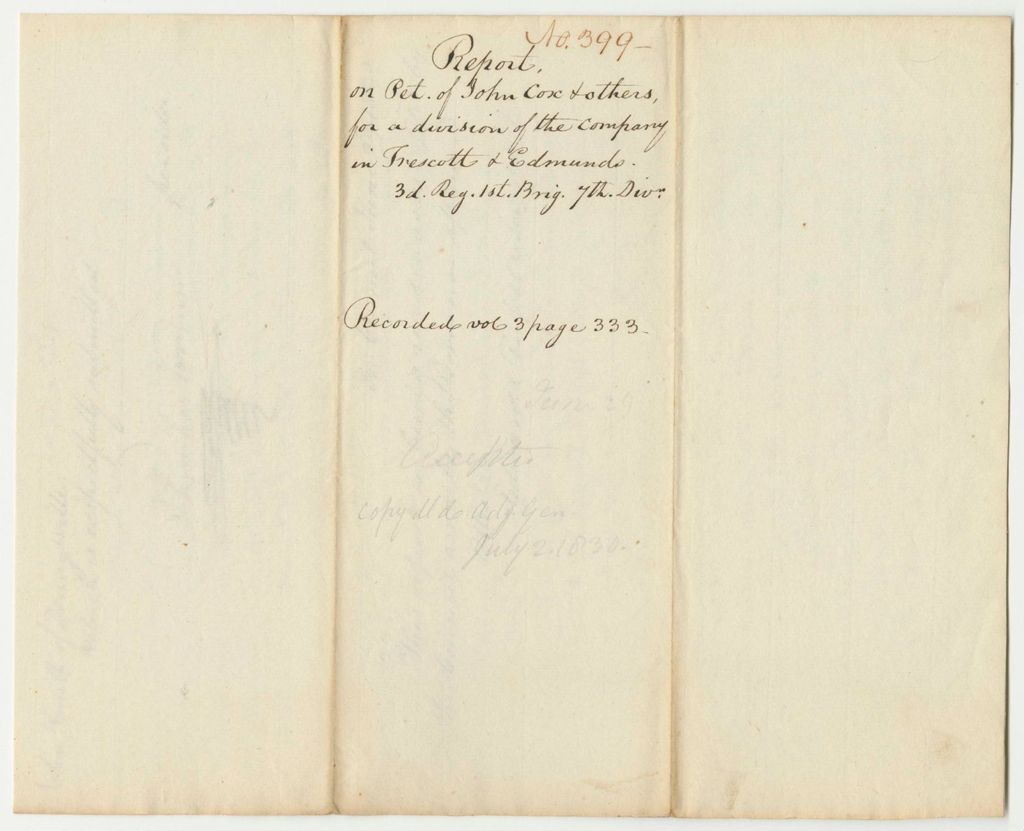 No. 399-
Report,
on Pet. of John Cox & others,
for a division of the company
in Trescott & Edmunds.
3d. Reg. 1st. Brig. 7th. Divn.
Recorded vol 3 page 333-
Jun 29
Accepted
copy dld. Adj. Gen
July 2. 1830.